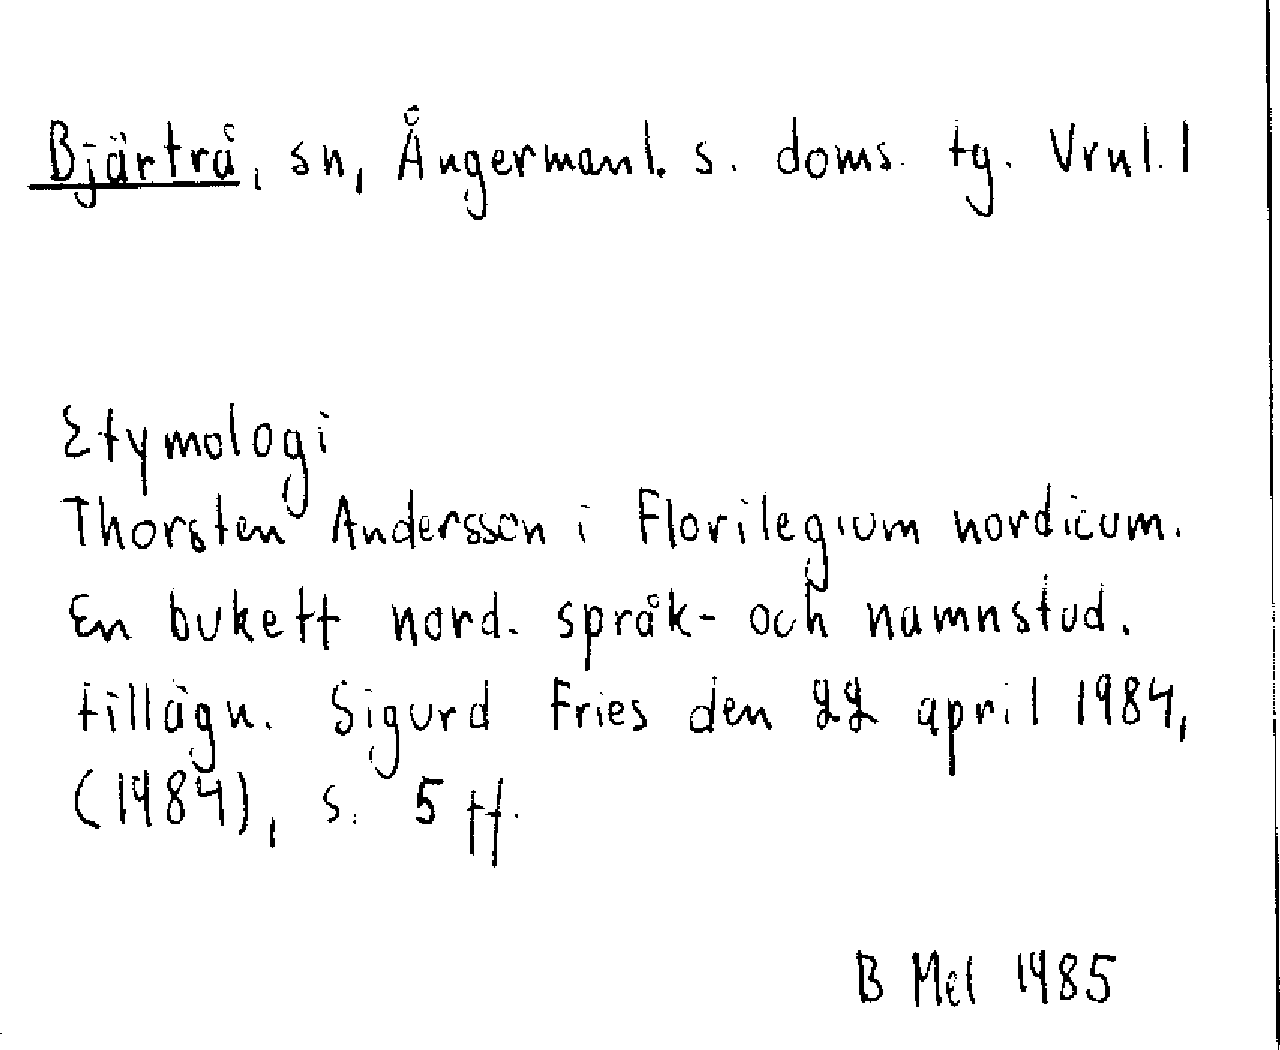 Bjärtrå, sn, Ångermanl. s. doms. tg. Vrnl. l
Etymologi
Thorsten Andersson i Florilegium nordicum.
En bukett nord. språk- och namnstud.
tillägn. Sigurd Fries den 22 april 1984,
(1984), s. 5 ff.
B Mel 1985